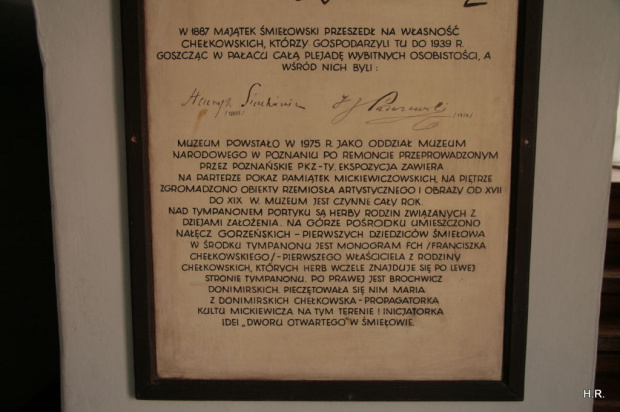 W 1887 MAJĄTEK ŚMIEŁOWSKI PRZESZEDŁ NA WŁASNOŚĆ
CHEŁKOWSKICH, KTÓRZY GOSPODARZYLI TU DO 1939 R.
GOSZCZĄC W PAŁACU CAŁĄ PLEJADĘ WYBITNYCH OSOBISTOŚCI, A
WŚRÓD NICH BYLI :
Henryk Sienkiewicz
MUZEUM POWSTAŁO W 1975 R. JAKO ODDZIAŁ MUZEUM
NARODOWEGO W POZNANIU PO REMONCIE PRZEPROWADZONYM
PRZEZ POZNAŃSKIE PKZ-TY. EKSPOZYCJA ZAWIERA
NA PARTERZE POKAZ PAMIĄTEK MICKIEWICZOWSKICH, NA PIĘTRZE
ZGROMADZONO OBIEKTY RZEMIOSŁA ARTYSTYCZNEGO I OBRAZY OD XVII
DO XIX W. MUZEUM JEST CZYNNE CAŁY ROK.
NAD TYMPANONEM PORTYKU SĄ HERBY RODZIN ZWIĄZANYCH Z
DZIEJAMI ZAŁOŻENIA. NA GÓRZE POŚRODKU UMIESZCZONO
NAŁĘCZ GORZEŃSKICH - PIERWSZYCH DZIEDZICÓW ŚMIEŁOWA
W ŚRODKU TYMPANONU JEST MONOGRAM FCH /FRANCISZKA
CHEŁKOWSKIEGO/ - PIERWSZEGO WŁAŚCICIELA Z RODZINY
CHEŁKOWSKICH, KTÓRYCH HERB WCZELE ZNAJDUJE SIĘ PO LEWEJ
STRONIE TYMPANONU. PO PRAWEJ JEST BROCHWICZ
DONIMIRSKICH. PIECZĘTOWAŁA SIĘ NIM MARIA
Z DONIMIRSKICH CHEŁKOWSKA - PROPAGATORKA
KULTU MICKIEWICZA NA TYM TERENIE I INICJATORKA
IDEI „DWORU OTWARTEGO" W ŚMIEŁOWIE.
H.R.